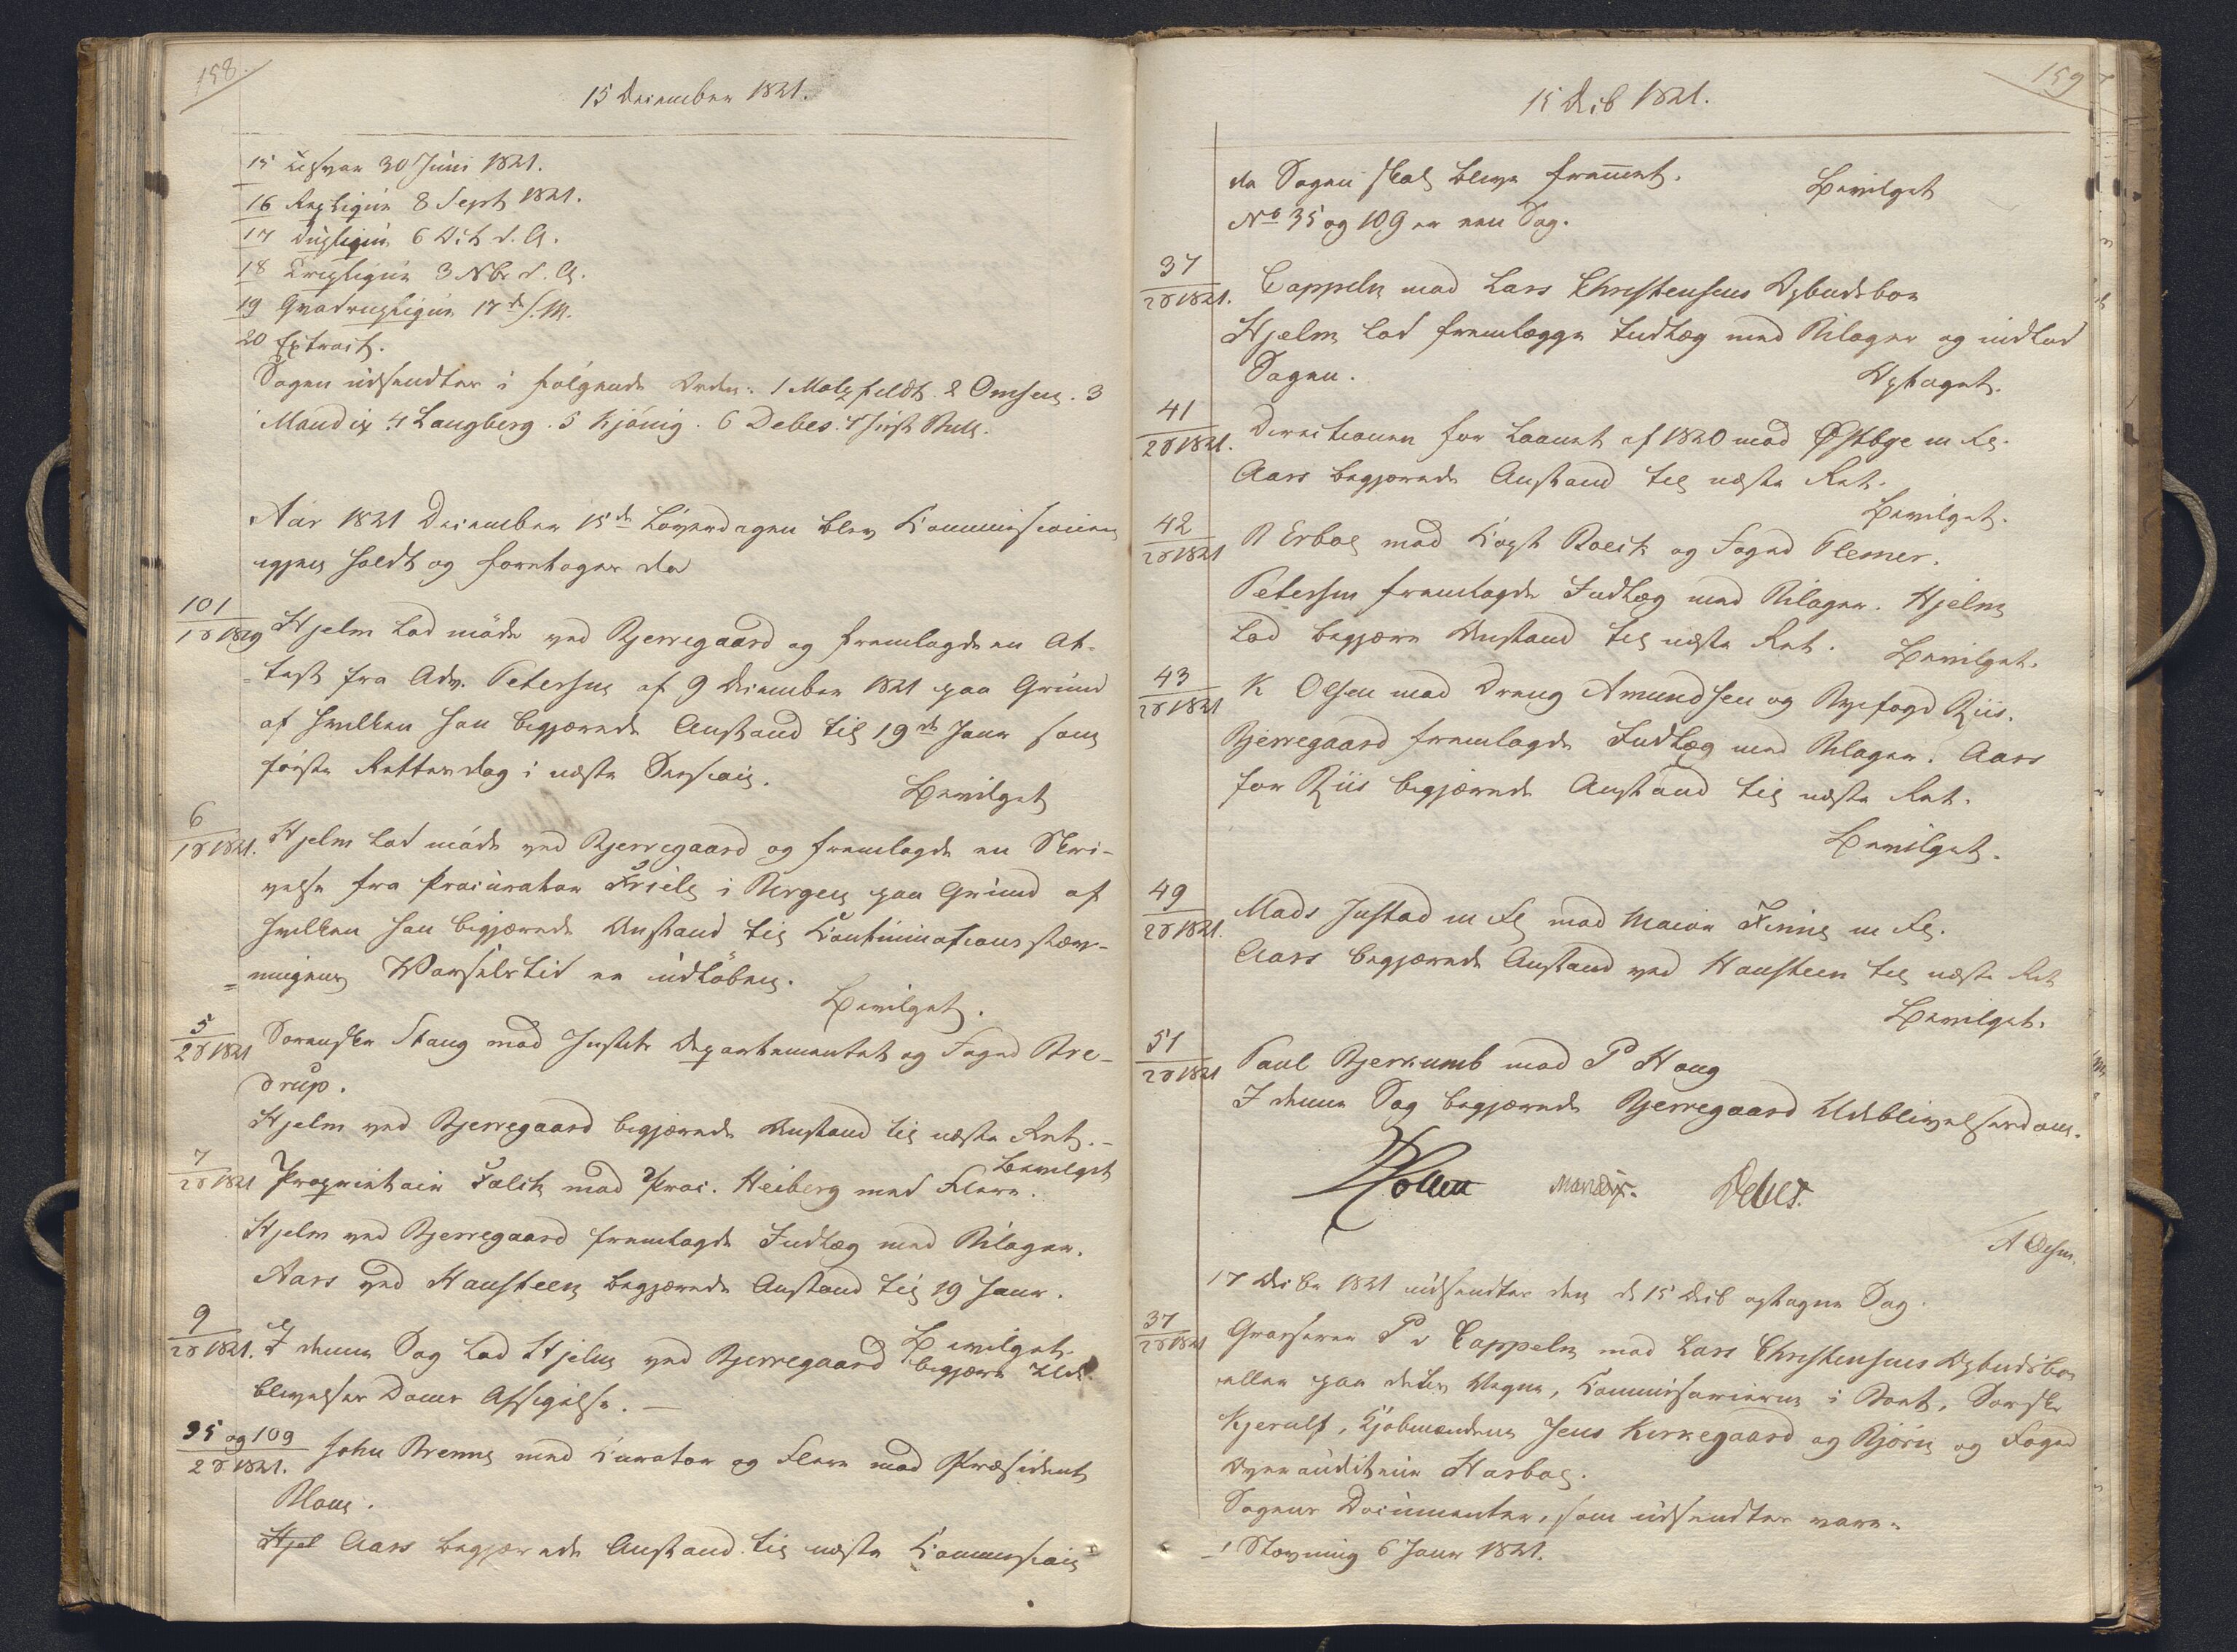 158.
15 December 1821.
15 Tilsvar 30 Juni 1821.
16 Repliqve 8 Sept 1821.
17 Dupliqve 6 Oct d. A.
18 Tripliqve 3 Nbr d. A.
19 Qvadrupliqve 17de s. M.
20 Extract.
Sagen udsendtes i følgende Orden: 1 Motzfeldt. 2 Omsen. 3
Mandix. 4 Langberg. 5 Kjønig. 6 Debes. 7 Just. Bull.
Aar 1821 December 15de Løverdagen blev Commissionen
igjen holdt og foretoges da
101
1 S 1819 Hjelm lod møde ved Bjerregaard og fremlagde en At-
test fra Adv. Petersen af 9 December 1821 paa Grund
af hvilken han begjærede Anstand til 19de Janr som
første Rettesdag i næste Session.
Bevilget
6
1 S 1821. Hjelm lod møde ved Bjerregaard og fremlagde en Skri-
velse fra Procurator Friele i Bergen paa Grund af
hvilken han begjærede Anstand til Continuationsstæv-
ningens Varselstid er udløben.
Bevilget.
5
2 S 1821 Sorenskr Stang mod Justits Departementet og Foged Bre-
drup.
Hjelm ved Bjerregaard begjærede Anstand til næste Ret.
Bevilget
7
2 S 1821 Proprietair Falck mod Proc. Heiberg med Flere.
Hjelm ved Bjerregaard fremlagde Indlæg med Bilager.
Aars ved Hansteen begjærede Anstand til 19 Janr.
Bevilget.
9
2 S 1821. I denne Sag lod Hjelm ved Bjerregaard begjære Ude-
blivelses Doms Afsigelse.
35 og 109
2 S 1821. John Brenne med Curator og Flere mod Præsident
Blom.
Hjel Aars begjærede Anstand til næste Commission
159
15 Decb 1821.
da Sagen skal blive fremmet.
Bevilget
No 35 og 109 er een Sag.
37
2 S 1821. Cappeln mod Lars Christensens Opbudsboe
Hjelm lod fremlægge Indlæg med Bilager og indlod
Sagen.
Optaget.
41
2 S 1821. Directionen for Laanet af 1820 mod Østbye m Fl.
Aars begjærede Anstand til næste Ret.
Bevilget.
42
2 S 1821 R Erboe mod Capt Roeck og Foged Plesner.
Petersen fremlagde Indlæg med Bilager. Hjelm
lod begjære Anstand til næste Ret.
Bevilget.
43
2 S 1821 K Olsen mod Dreng Amundsen og Byefogd Riis.
Bjerregaard fremlagde Indlæg med Bilager. Aars
for Riis begjærede Anstand til næste Ret.
Bevilget.
49
2 S 1821. Mads Justad m Fl mod Maren Finne m Fl.
Aars begjærede Anstand ved Hansteen til næste Ret
Bevilget.
51
2 S 1821 Paul Bjerkumb mod P Haug
I denne Sag begjærede Bjerregaard Udeblivelsesdom.
Mandix. Debes.
17 Decbr 1821 udsendtes den d 15 Decb optagne Sag.
37
2 S 1821 Grosserer P v Cappeln mod Lars Christensens Opbudsboe
eller paa dettes Vegne, Commissarierne i Boet, Sorskr
Kjerulf, Kjøbmændene Jens Kirkegaard og Bjørn og Foged
Overauditeur Harboe.
Sagens Documenter, som udsendtes vare:
1 Stævning 6 Janr 1821.